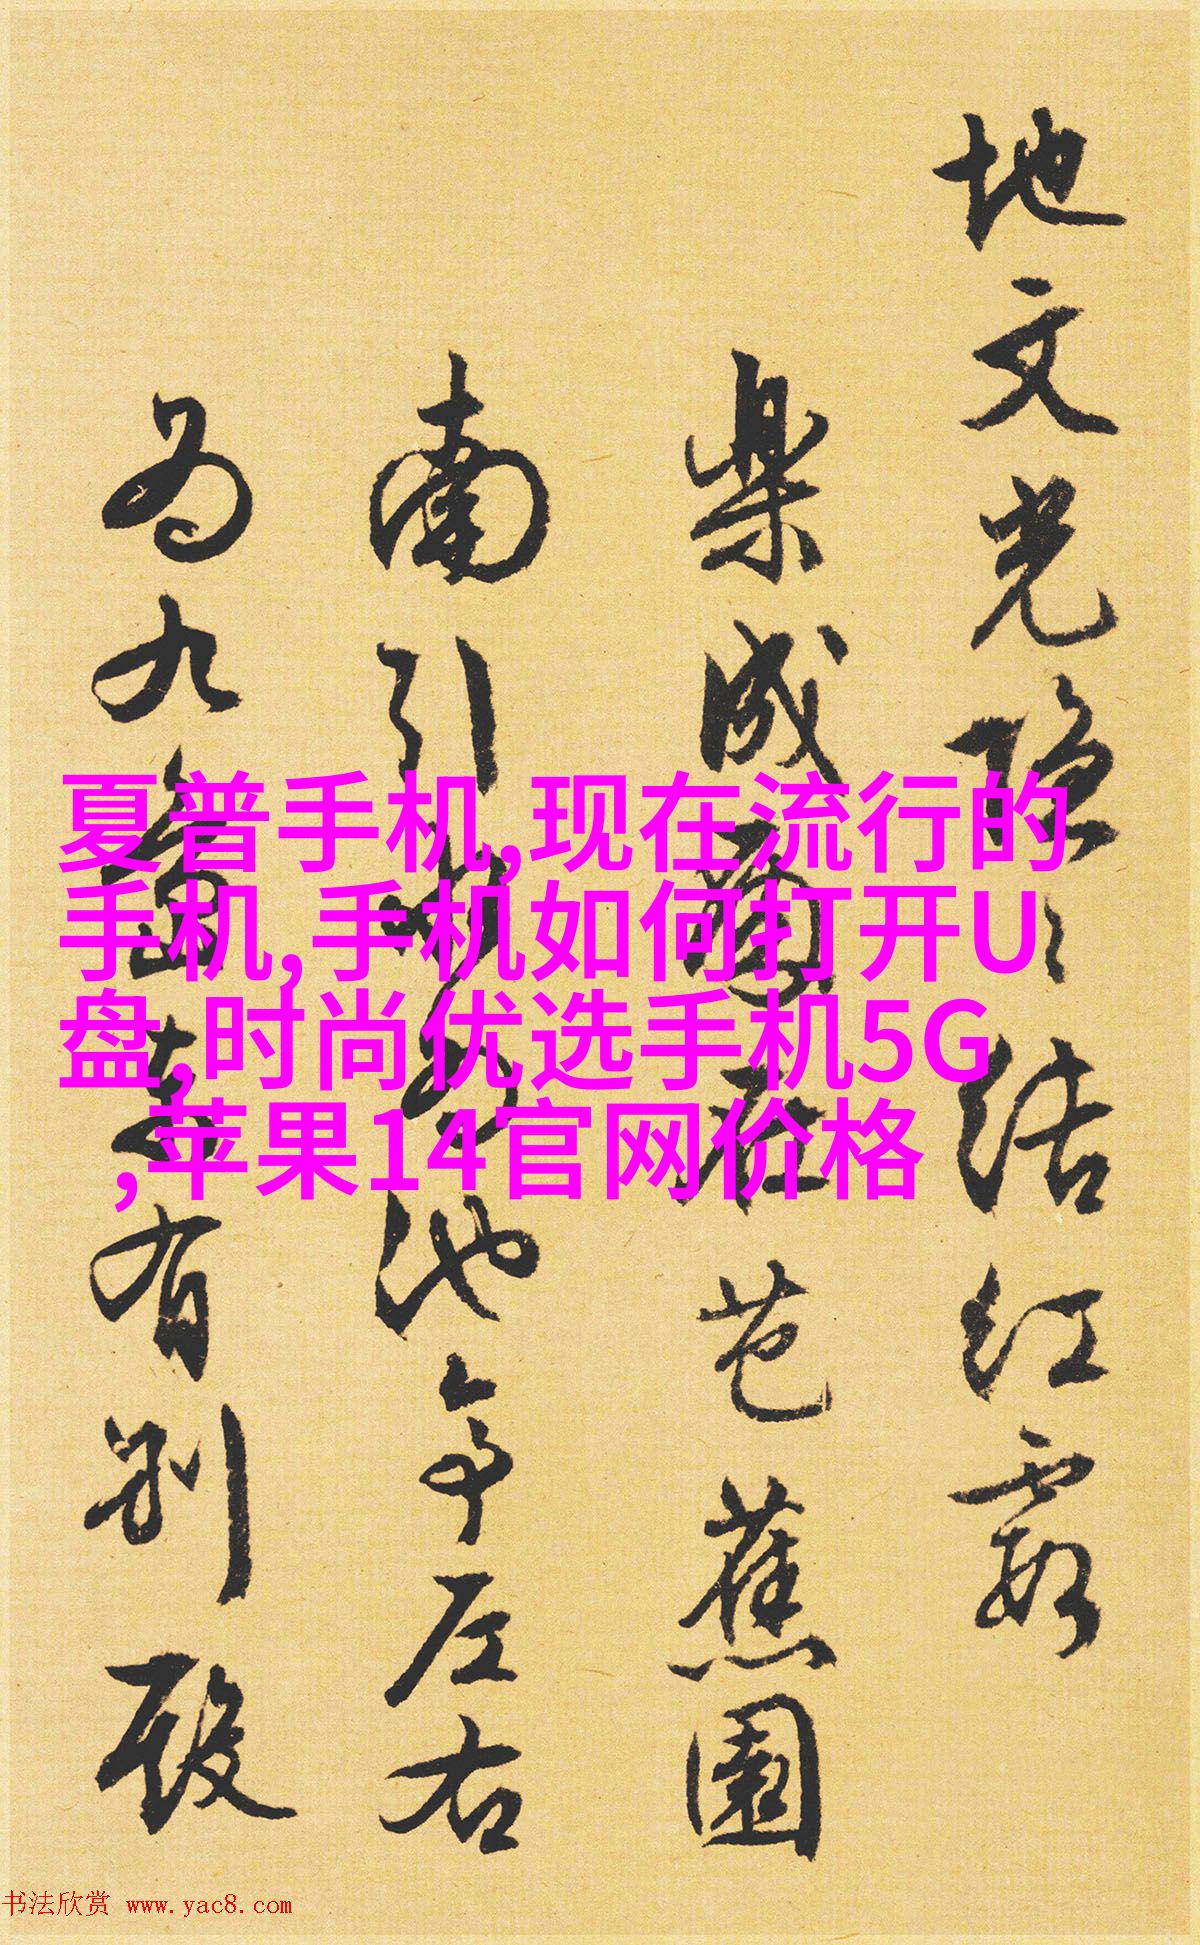 地文光隐〻结红霞
樂成爾在芭蕉園
南引水为池亭左右
为九留事有别殿
夏普手机,现在流行的
手机,手机如何打开U
盘,时尚优选手机5G
,苹果14官网价格
书法欣赏 www.yac8.com